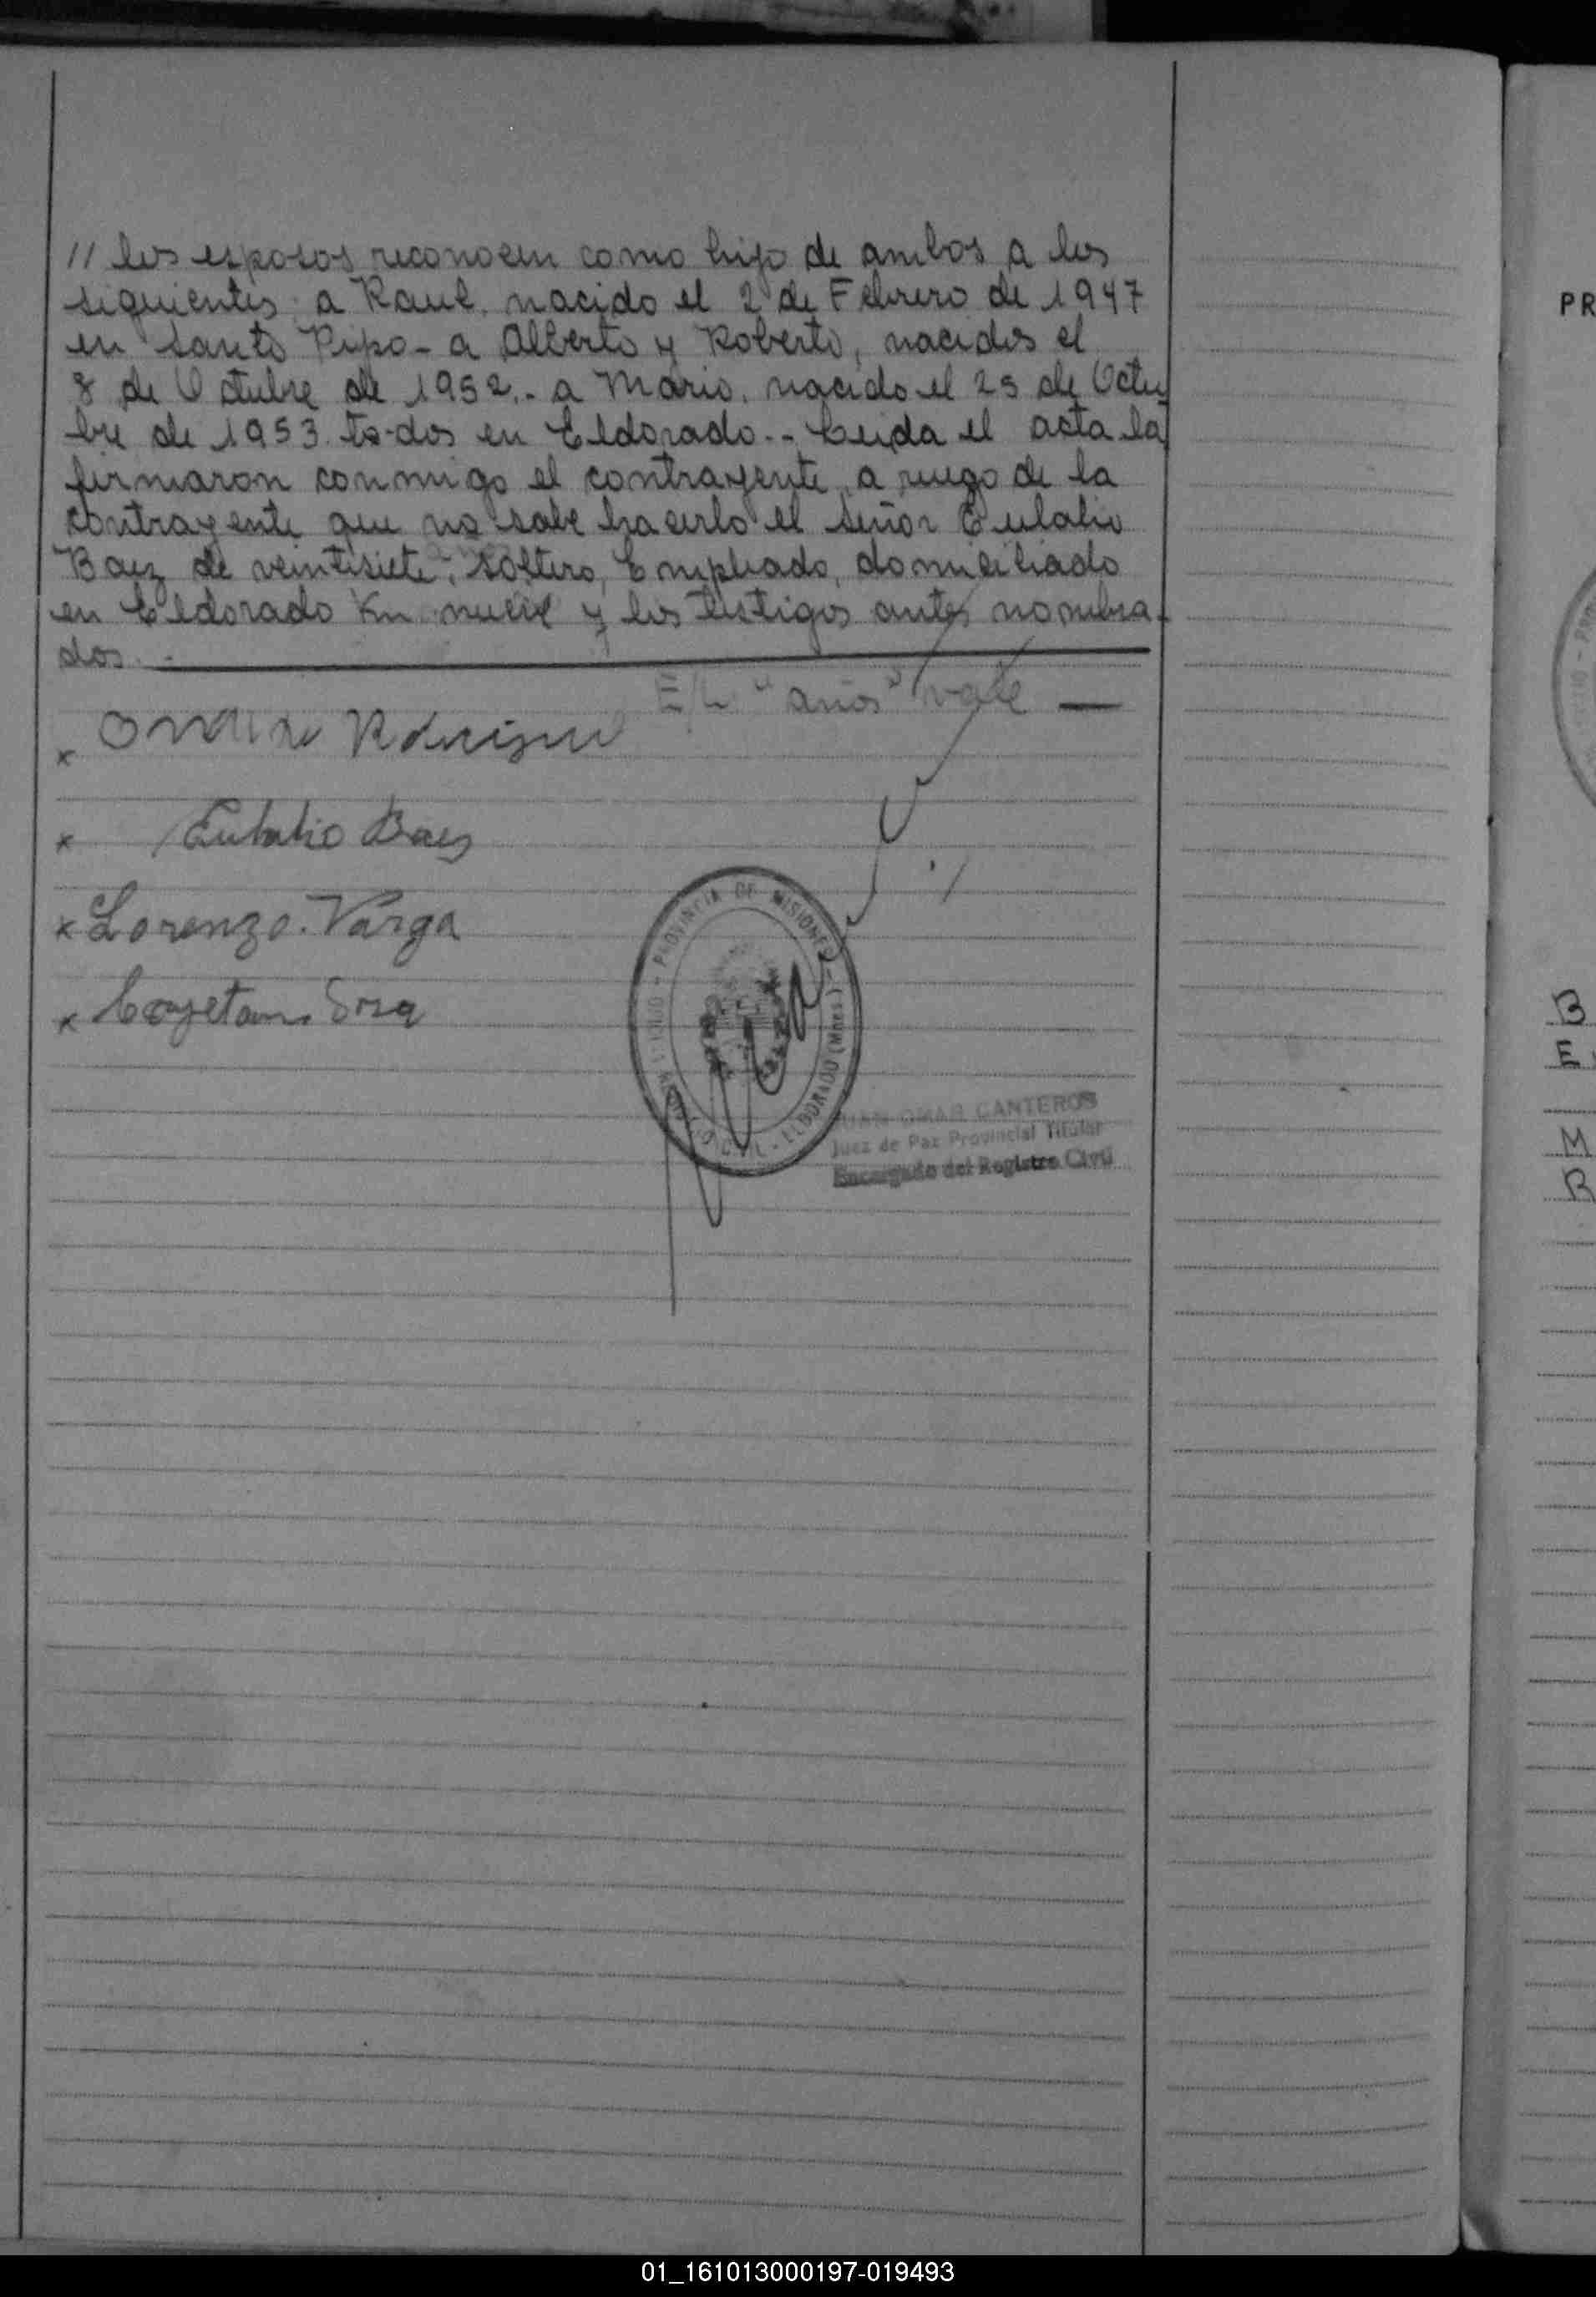 // los esposos reconocen como hijo de ambos a los
siguientes: a Raul, nacido el 2 de Febrero de 1947
en Santo Pipo - a Alberto y Roberto, nacidos el
8 de Octubre de 1952.- a Mario, nacido el 25 de Octu
bre de 1953. to-dos en Eldorado.- Leida el acta la
firmaron conmigo el contrayente, a ruego de la
contrayente que no sabe hacerlo el señor Eulalio
Baez de veintisiete años, soltero, Empleado, domiciliado
en Eldorado Km. nueve y los testigos antes nombra-
dos.-
E/L "años" vale —
x
x Eulalio Baez
x Lorenzo. Varga
x Cayetano Sosa
PROVINCIA DE MISIONES - ELDORADO (Mnes.)
JUAN OMAR CANTEROS
Juez de Paz Provincial Titular
Encargado del Registro Civil
PR
B
E
M
R
01_161013000197-019493